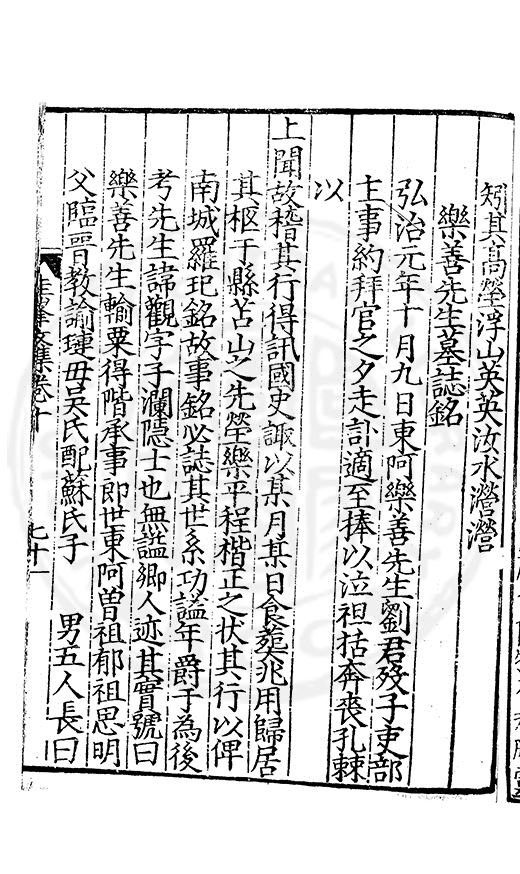 矧其高塋浮山英英汝水瀯瀯
樂善先生墓誌銘
弘治元年十月九日東阿樂善先生劉君歿子吏部
主事約拜官之夕走訃適至捧以泣袒括奔喪孔棘
以
上聞故稽其行得訊國史諏以某月某日食葬兆用歸居
其柩于縣苫山之先塋樂平程楷正之状其行以俾
南城羅玘銘故事銘必誌其世系功謚年爵于為後
考先生諱觀字子瀾隱士也無謚鄉人迹其實號曰
樂善先生輸粟得階承事郎世東阿曾祖郁祖思明
父臨晉教諭璉毋吳氏配蘇氏子 男五人長曰
圭峰文集卷十 七十一